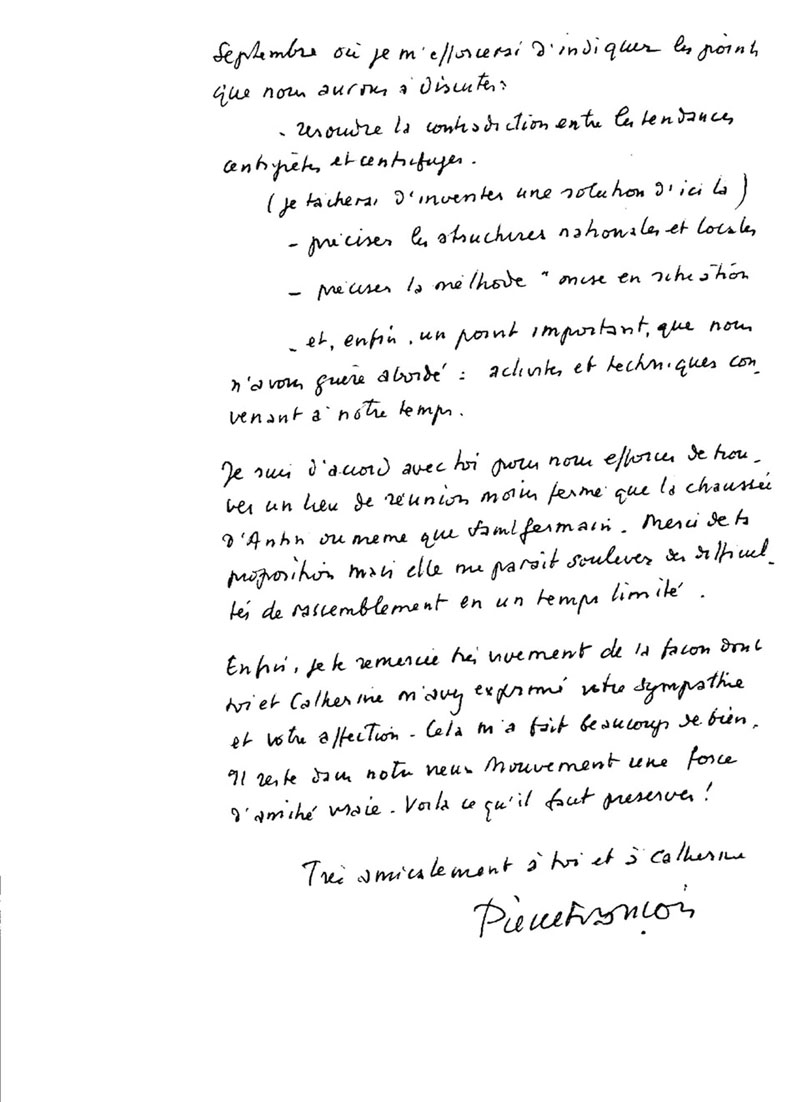 Septembre où je m'efforcerai d'indiquer les points
que nous aurons à discuter :
- résoudre la contradiction entre les tendances
centripètes et centrifuges.
(je tâcherai d'inventer une solution d'ici là)
- préciser les structures nationales et locales
- préciser la méthode "mise en situation
- et, enfin, un point important, que nous
n'avons guère abordé : activités et techniques con-
venant à notre temps.
Je suis d'accord avec toi pour nous efforcer de trou-
ver un lieu de réunion moins fermé que la chaussée
d'Antin ou même que Saint Germain. Merci de ta
proposition mais elle me paraît soulever des difficul-
tés de rassemblement en un temps limité.
Enfin, je te remercie très vivement de la façon dont
toi et Catherine m'avez exprimé votre sympathie
et votre affection. Cela m'a fait beaucoup de bien.
Il reste dans notre vieux Mouvement une force
d'amitié vraie. Voilà ce qu'il faut préserver !
Très amicalement à toi et à Catherine
Pierre François